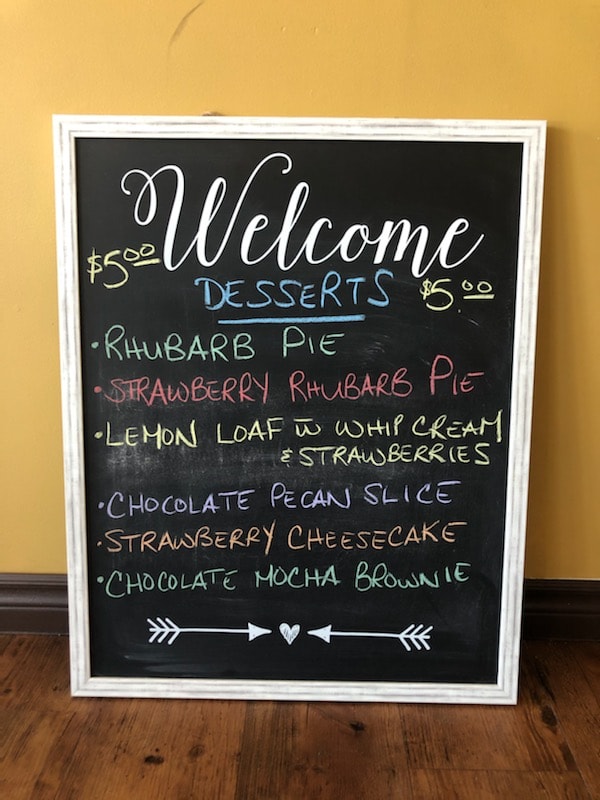 Welcome
$5.00
DESSERTS $5.00
•RHUBARB PIE
•STRAWBERRY RHUBARB PIE
•LEMON LOAF w̅ WHIP CREAM
& STRAWBERRIES
•CHOCOLATE PECAN SLICE
•STRAWBERRY CHEESECAKE
•CHOCOLATE MOCHA BROWNIE